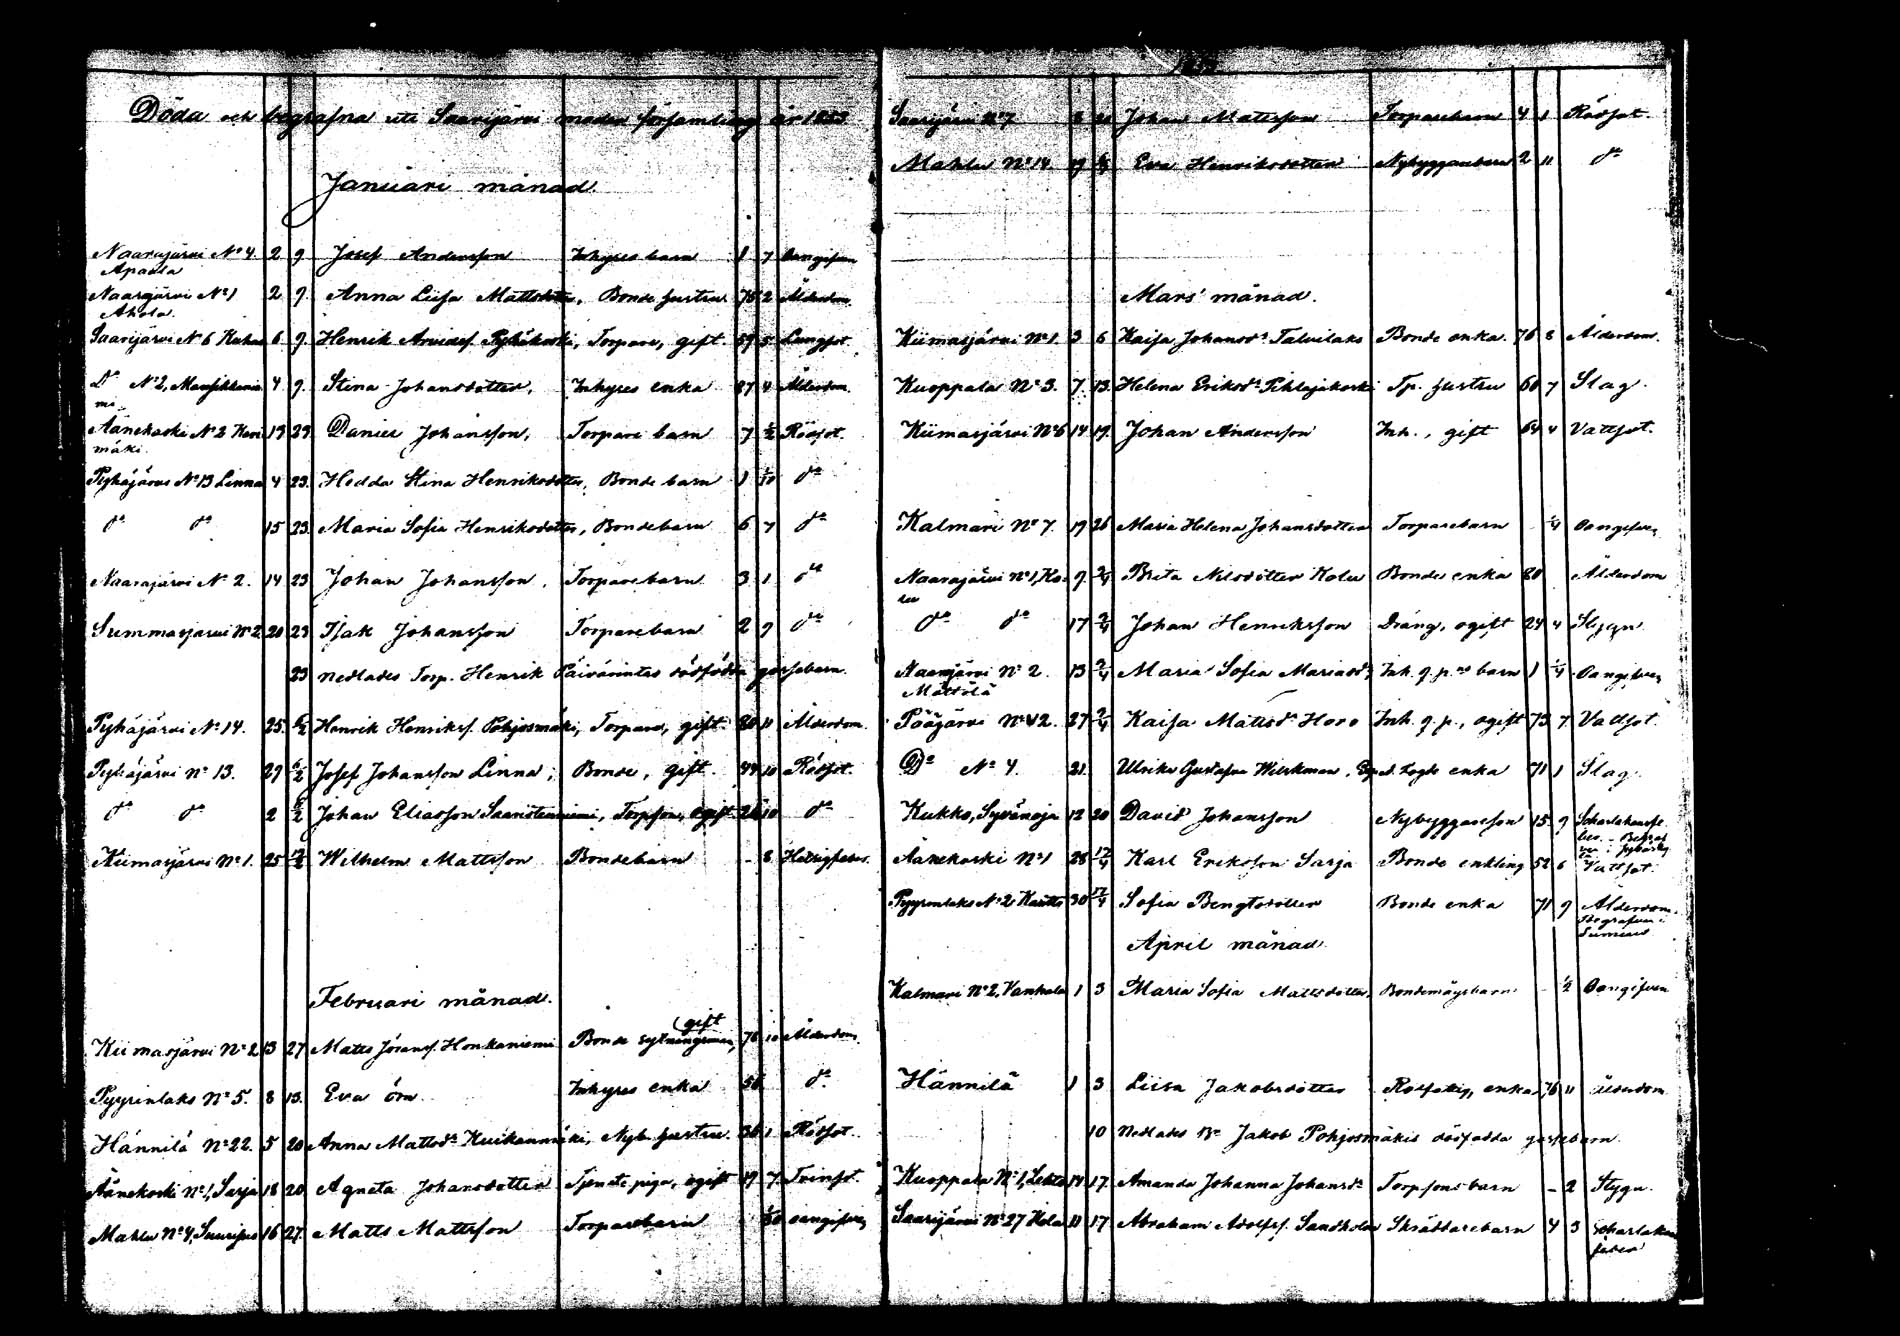 Döda och begrafna uti Saarijärvi moder församling år 1853
Januari månad.
Naarajärvi No 4. 2 9 Josef Andersson Inhyses barn 1 7 oangifven
Apaala
Naarajärvi No 1 2 9. Anna Lisa Mattsdotter, Bonde hustru 75 2 Ålderdom.
Ahola.
Saarijärvi No 6 6. 9. Henrik Arvidss. Torpare, gift. 59 5 Lungsot.
Do No 2, 4. 9. Stina Johansdotter, Inhyses enka 87 4 Ålderdom.
Äänekoski No 2 13 23. Daniel Johansson, Torpare barn 7 1/2 Rödsot.
mäki.
Pyhäjärvi No 13 Linna 4 23. Hedda Stina Henriksdotter, Bonde barn 1 1/10 do
do do 15 23. Maria Sofia Henriksdotter, Bondebarn 6 7 do
Naarajärvi No 2. 14 23 Johan Johansson, Torparebarn 3 1 do
Summasjärvi No 2 20 23 Isak Johansson Torparebarn 2 9 do
23 Nedlades Torp. Henrik Päivärintas dödfödda gossebarn.
Pyhäjärvi No 14. 25. 6/2 Henrik Henrikss. Pohjosmäki, Torpare, gift 80 11 Ålderdom.
Pyhäjärvi No 13. 29 6/2 Josef Johansson Linna, Bonde, gift. 44 10 Rödsot.
do do 2 6/2 Johan Eliasson Torpson, ogift 26 10 do
Kiimasjärvi No 1. 25 13/2 Wilhelm Mattsson Bondebarn - 8 Hetsigfeber.
Februari månad.
gift
Kiimasjärvi No 2 13 27 Matts Göranss. Honkaniemi Bonde sytningsman, 78 10 Ålderdom
Pyyrinlaks No 5. 8 13. Eva Örn Inhyses enka 56 do
Hännilä No 22. 5 20 Anna Mattsdr Kuikanmäki, Nyb. hustru. 36 1 Rödsot.
Äänekoski No 1, Sarja 18 20 Agneta Johansdotter Tjenste piga, ogift 19 7 Tvinsot.
Mahlu No 4, 16 27. Matts Mattsson Torparebarn 1/30 oangifven
Saarijärvi No 7 8 20 Johan Mattsson Torparebarn 4 1 Rödsot.
Mahlu No 14. 19 Eva Henriksdotter Nybyggarebarn 2 11 do
Mars månad.
Kiimasjärvi No 1. 3 6 Kaisa Johansdr Talvilaks Bonde enka. 76 8 Ålderdom.
Kuoppala No 3. 7. 13. Helena Eriksdr Pihlajakoski Tp. hustru 60 7 Slag.
Kiimasjärvi No 6 14 19. Johan Andersson Inh., gift 64 4 Vattsot.
Kalmari No 7. 19 26 Maria Helena Johansdotter Torparebarn - 1/4 oangifven
Naarajärvi No 1, 9. 2/4 Brita Nilsdotter Bonde enka 80 Ålderdom
do do 17 2/4 Johan Henriksson Dräng, ogift 24 4 Stygn.
Naarajärvi No 2. 13 2/4 Maria Sofia Mariædr, Inh. q.p.ns barn 1 1/4 Oangifven
Mattila
Pääjärvi No 42. 27 2/4 Kaisa Mattsdr Inh. q.p., ogift 73 7 Vattsot.
Do No 4. 21. Ulrika Gustafva enka 71 1 Slag.
Kukko, Syvänoja 12 20 David Johansson Nybyggareson 15. 9
Äänekoski No 1 28 17/4 Karl Eriksson Sarja Bonde enkling 52 6 Vattsot.
Pyyrinlaks No 2 Kautto 30 17/4 Sofia Bengtsdotter Bonde enka 71 9 Ålderdom.
Begrafven i
Sumiais
April månad.
Kalmari No 2, Vanhala 1 3 Maria Sofia Mattsdotter, Bondemågsbarn - 1/2 Oangifven
Hännilä 1 3 Liisa Jakobsdotter enka 76 11 Ålderdom
10 Nedlades Be Jakob Pohjosmäkis dödfödda gossebarn.
Kuoppala No 1, 14 17. Amanda Johanna Johansdr Torpsons barn - 2 Stygn.
Saarijärvi No 27 Kola 11 17 Abraham Adolfss. Sandholm Skräddarebarn 4 3 Scharlakans
feber